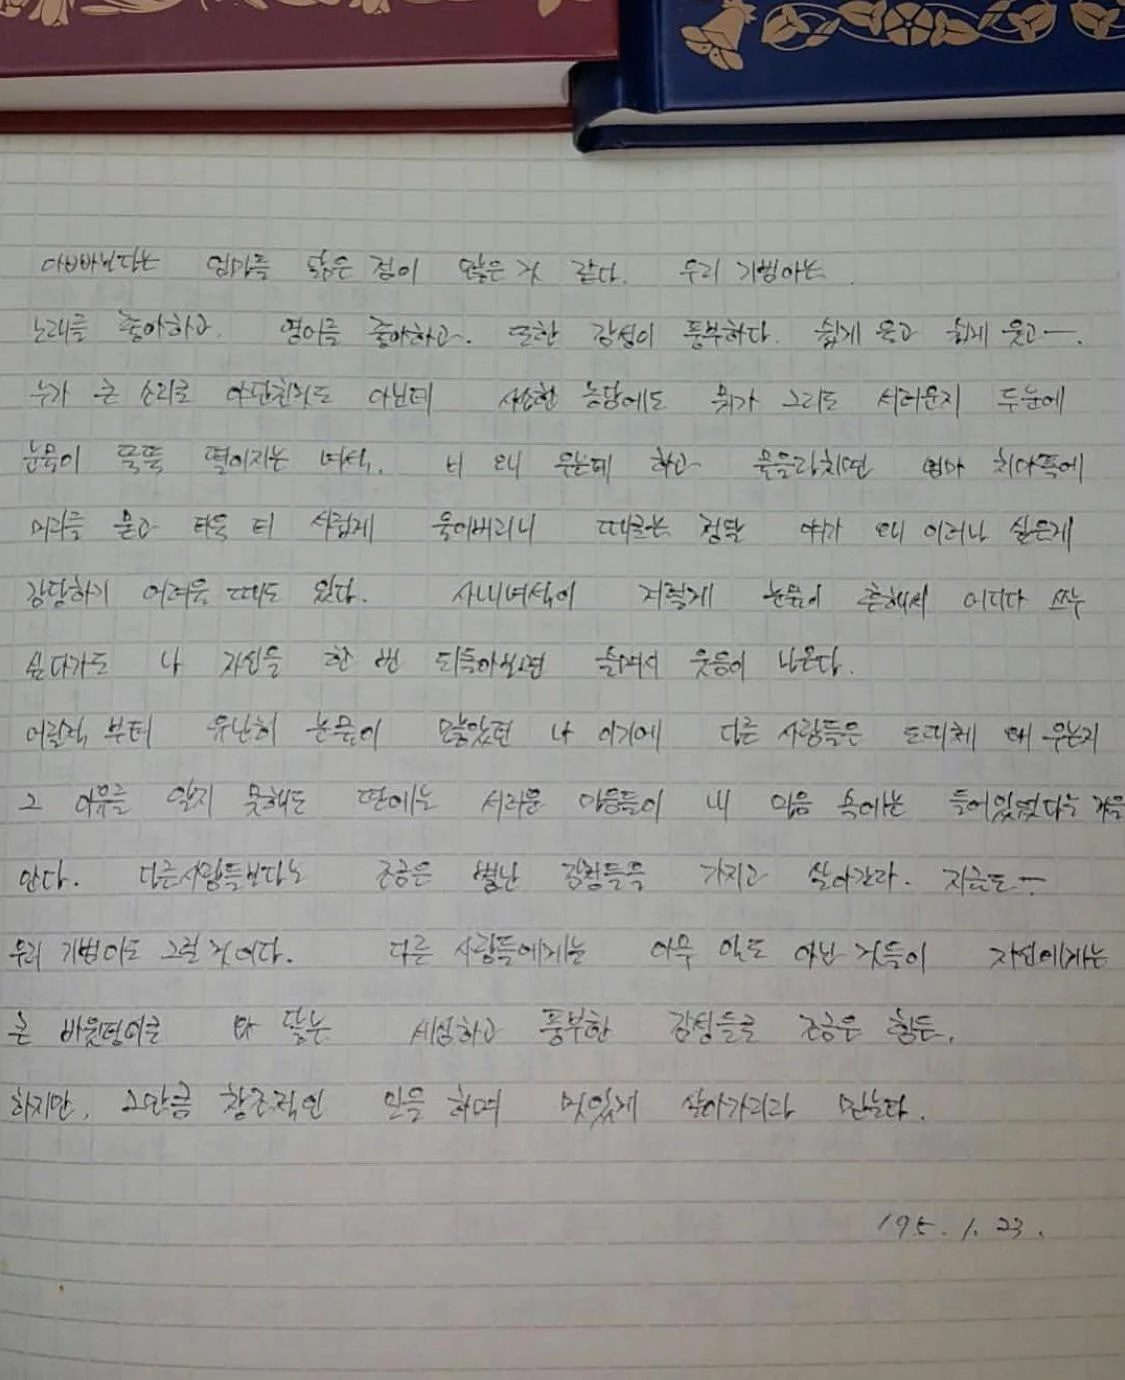 아빠보다는 엄마를 닮은 점이 많은 것 같다. 우리 기범이는
노래를 좋아하고. 영어를 좋아하고. 또한 감성이 풍부하다. 쉽게 울고 쉽게 웃고ㅡ.
누가 큰 소리로 야단친것도 아닌데 사소한 농담에도 뭐가 그리도 서러운지 두눈에
눈물이 뚝뚝 떨어지는 녀석. 너 왜 우는데 하고 윽을라치면 엄마 치마폭에
머리를 묻고 더욱 더 서럽게 울어버리니 때로는 정말 야가 왜 이러나 싶은게
감당하기 어려울 때도 있다. 사내녀석이 저렇게 눈물이 흔해서 어디다 쓰누
싶다가도 나 자신을 한 번 되돌아보면 슬며시 웃음이 나온다.
어릴적 부터 유난히 눈물이 많았던 나 이기에 다른 사람들은 도대체 왜 우는지
그 이유를 알지 못해도 딴에는 서러운 마음들이 내 마음 속에는 들어있었다는 것을
안다. 다른사람들보다는 조금은 별난 감정들을 가지고 살아간다. 지금도ㅡ
우리 기범이도 그럴 것이다. 다른 사람들에게는 아무 일도 아닌 것들이 자신에게는
큰 바윗덩이로 와 닿는 세심하고 풍부한 감성들로 조금은 힘든.
하지만. 그만큼 창조적인 일을 하며 멋있게 살아가리라 믿는다.
195. 1. 23.